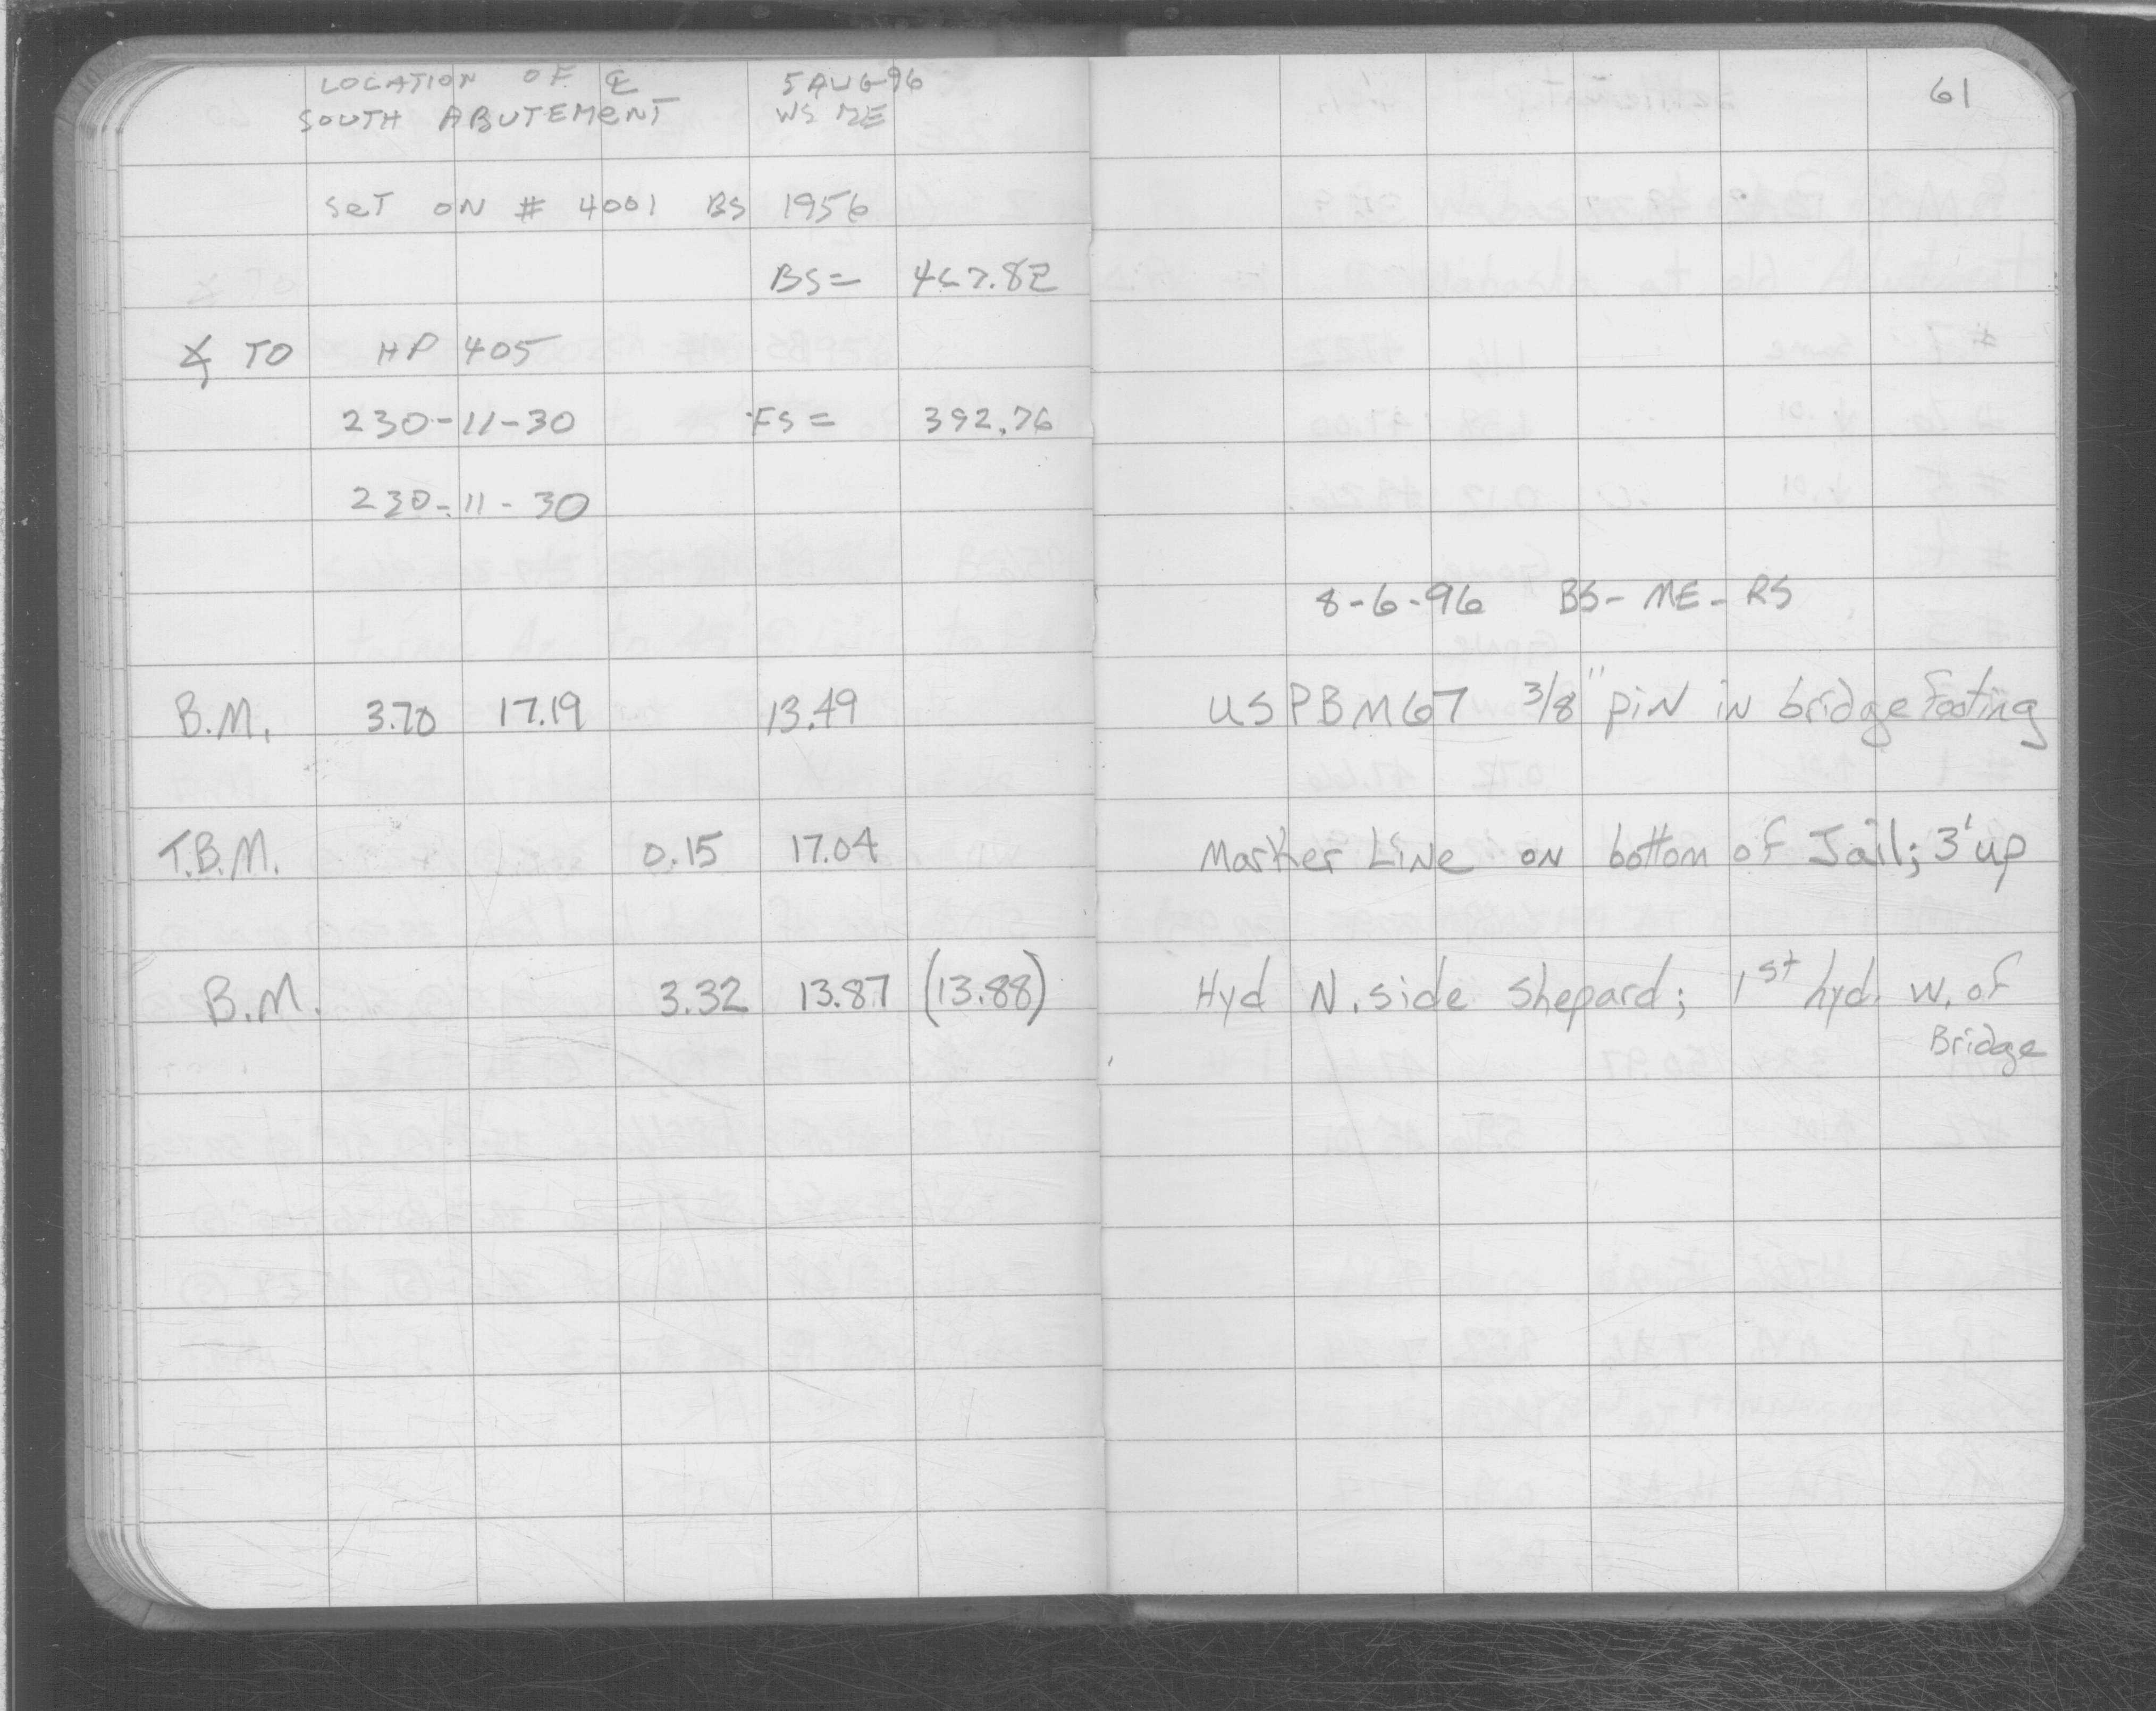 LOCATION OF ℄ 5 AUG 96
SOUTH ABUTEMENT WS ME
SET ON # 4001 BS 1956
BS= 467.82
∡ TO HP 405
230-11-30 FS = 392.76
230-11-30
B.M. 3.70 17.19 13.49
T.B.M. 0.15 17.04
B.M. 3.32 13.87 (13.88)
61
8-6-96 BS - ME - RS
USPBM67 3/8" pin in bridge Footing
Marker Line on bottom of Jail; 3' up
Hyd N. side Shepard; 1st hyd. W. of
Bridge